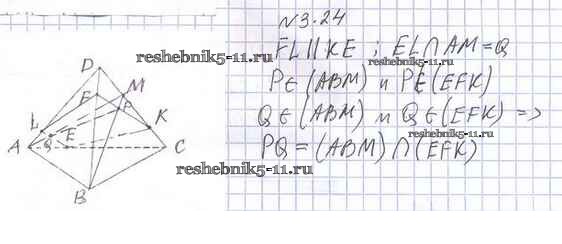 N3.24
FL||KE ; EL∩AM=Q
reshebnik5-11.ru
P∈(ABM) и P∈(EFK)
Q∈(ABM) и Q∈(EFK) =>
PQ=(ABM)∩(EFK)
reshebnik5-11.ru
reshebnik5-11.ru
reshebnik5-11.ru
reshebnik5-11.ru
D
F
M
P
L
K
Q
E
A
C
B